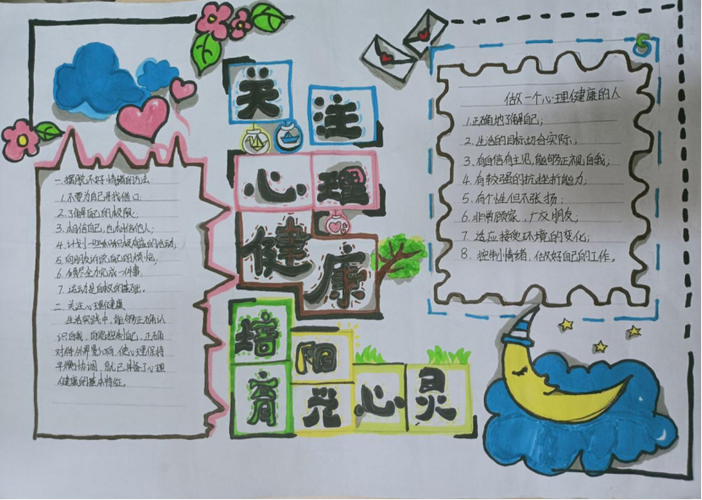 关注
心理
健康
培育
阳光
心灵
一、摆脱不好情绪的方法
1.不要为自己寻找借口
2.了解自己的极限
3.相信自己,也相信他人;
4.计划一些
5.向朋友诉说自己的烦恼。
6.倾尽全力完成一件事。
7.运动是
二、关注心理健康
生活实践中,能够正确认
识自我,自觉控制自己,正确
对待外界影响,使心理保持
平衡协调,就已具备了心理
健康的基本特征。
做一个心理健康的人
1.正确地了解自己;
2.生活的目标切合实际;
3.有自信有主见,能够正视自我;
4.有较强的抗挫折能力;
5.有个性但不张扬;
6.兼顾家,广交朋友;
7.适应接受环境的变化;
8.控制情绪,做好自己的工作。